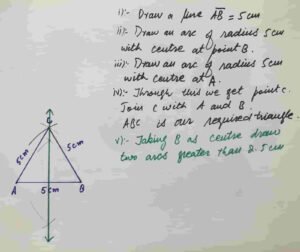 i):- Draw a line AB = 5cm
ii):- Draw an arc of radius 5cm
with centre at point B.
iii):- Draw an arc of radius 5cm
with centre at A.
iv):- Through this we get point c.
Join C with A and B.
ABC is our required triangle.
v):- Taking B as centre draw
two arcs greater than 2.5cm
C
5cm
5cm
A
5cm
B